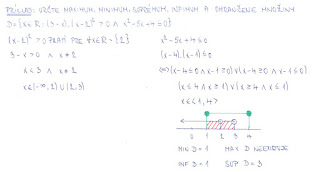 PŘÍKLAD: URČTE MAXIMUM, MINIMUM, SUPRÉMUM, INFIMUM A OHRANIČENIE MNOŽINY
D={x∈R: (3-x).(x-2)² > 0 ∧ x²-5x+4≤0}
(x-2)² > 0 PLATÍ PRE ∀x∈R-{2}
x²-5x+4≤0
3-x>0 ∧ x≠2
(x-4).(x-1)≤0
x<3 ∧ x≠2
(x-4≤0 ∧ x-1≥0) ∨ (x-4≥0 ∧ x-1≤0)
x∈(-∞,2) ∪ (2,3)
(x≤4 ∧ x≥1) ∨ (x≥4 ∧ x≤1)
x∈<1,4>
0 1 2 3 4
MIN D=1 MAX D NEEXISTUJE
INF D=1 SUP D=3